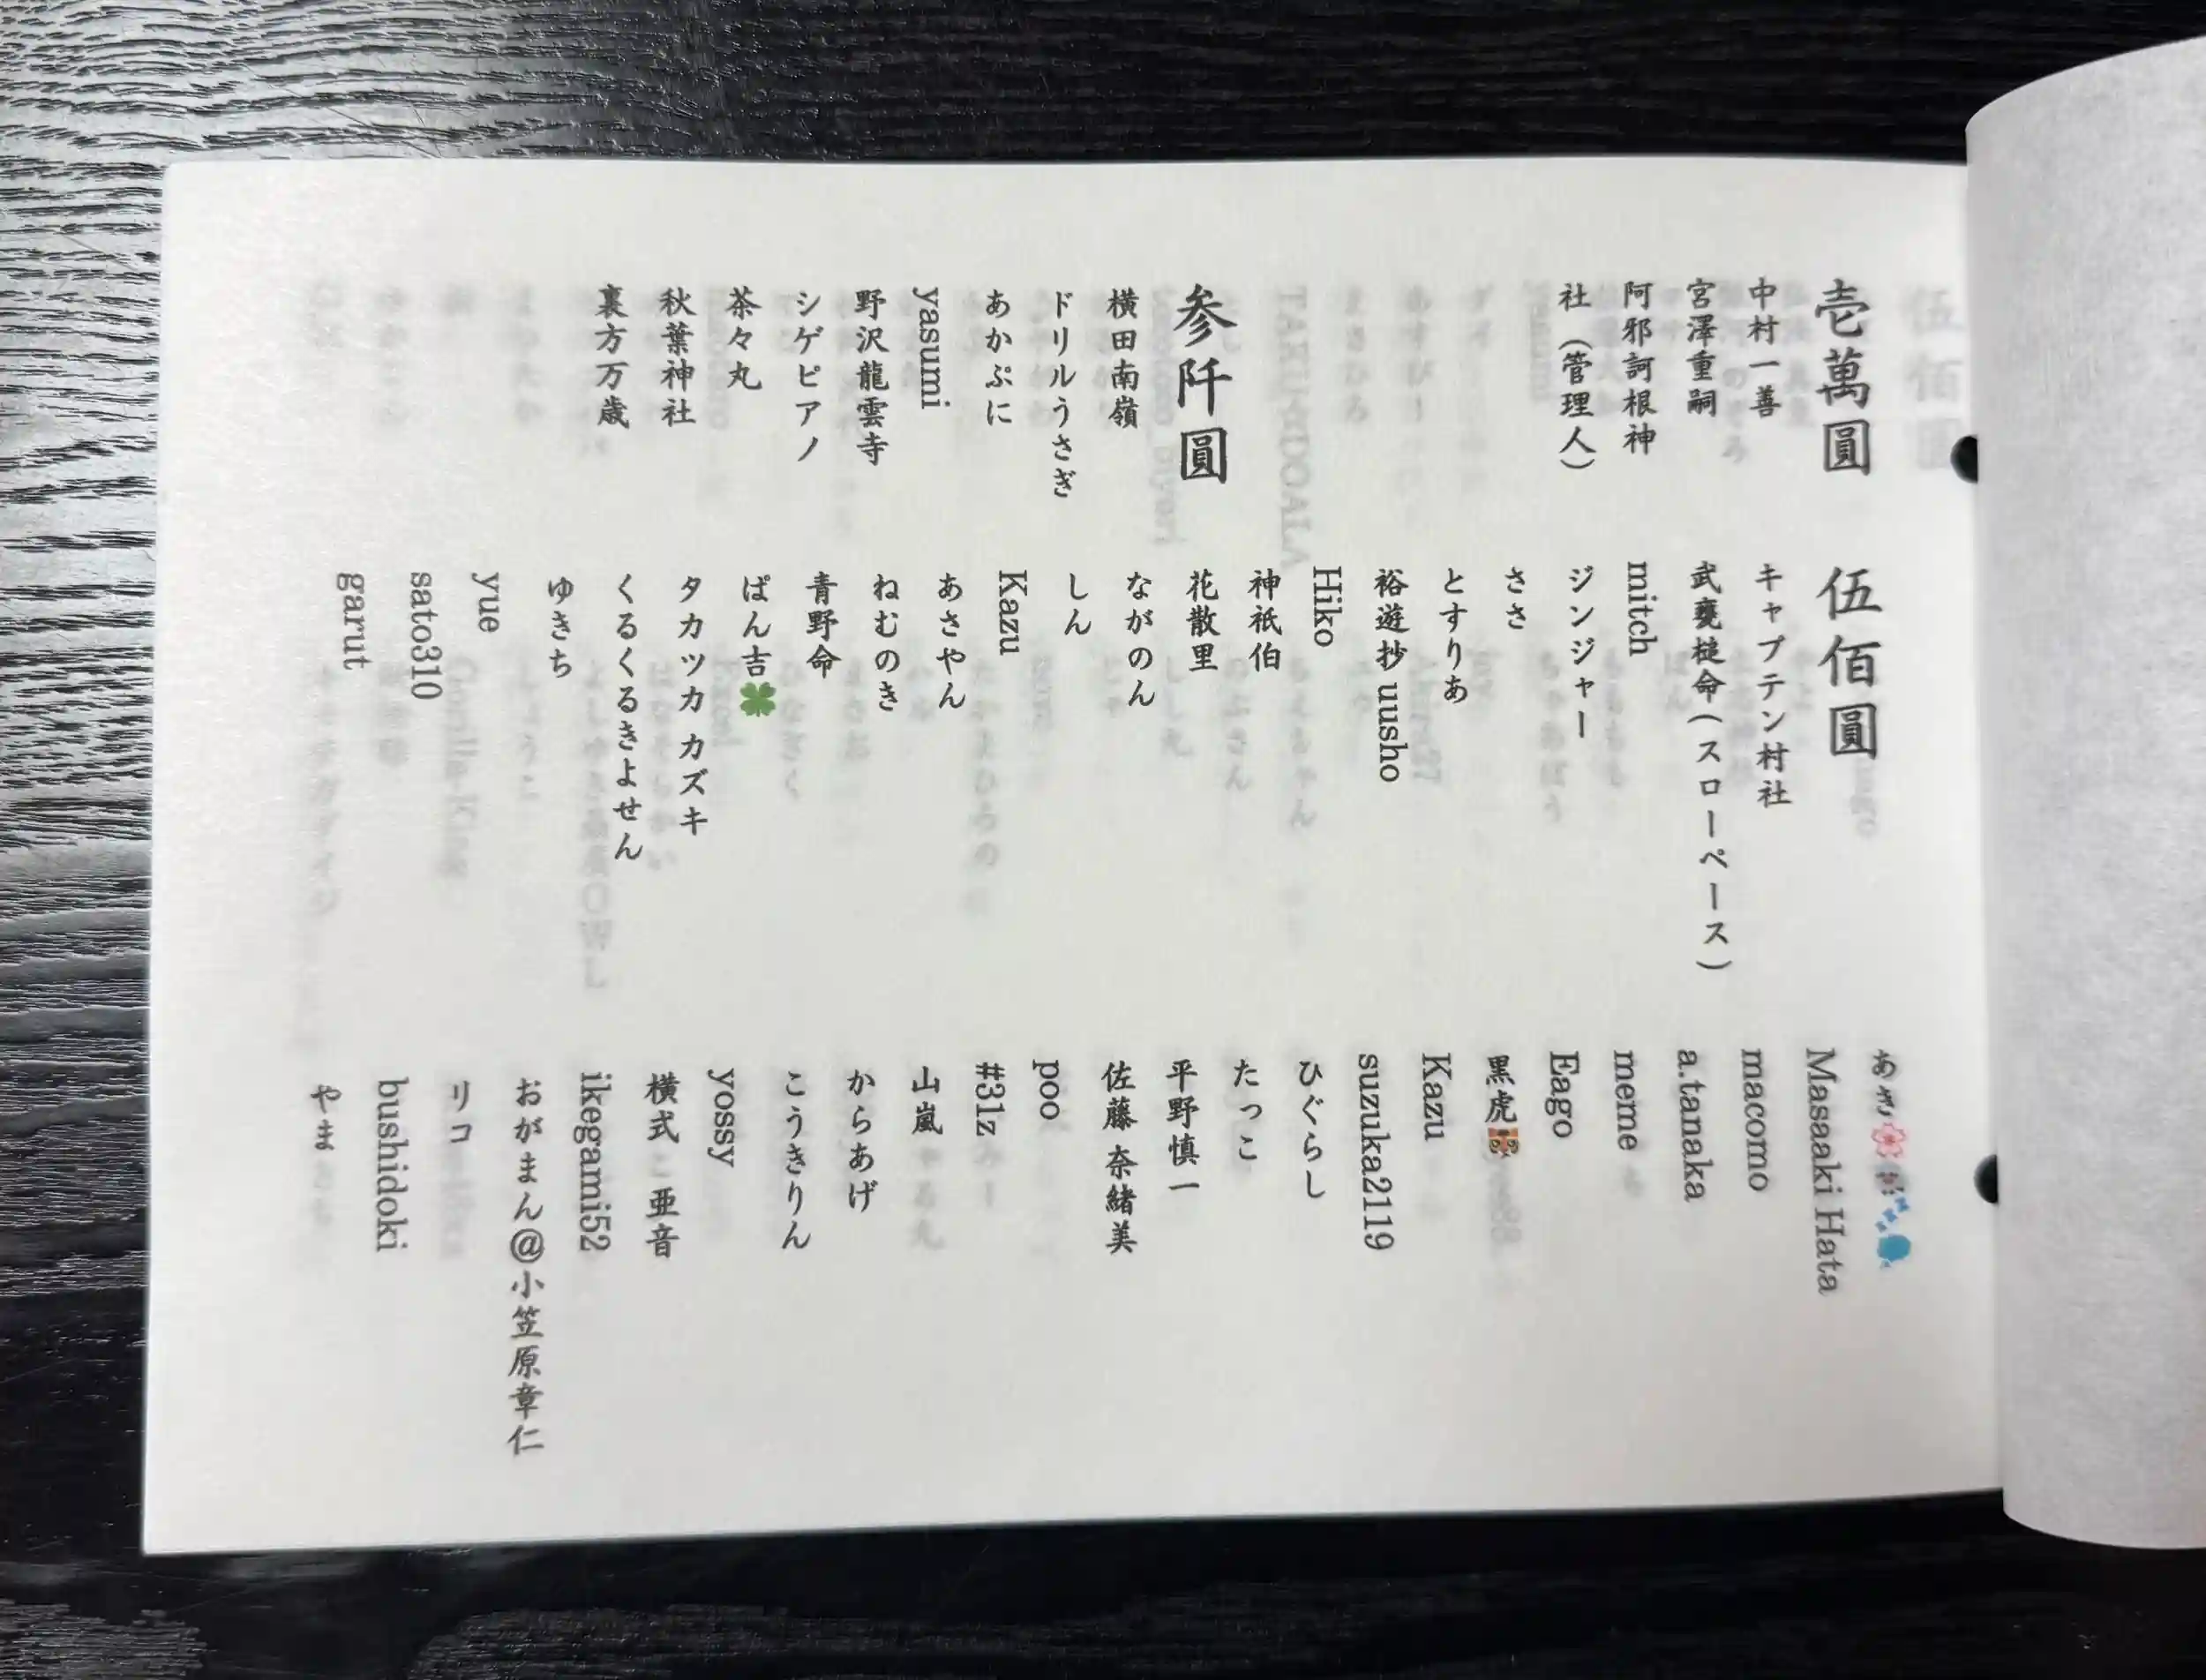 壱萬圓
中村一善
宮澤重嗣
阿邪訶根神
社（管理人）
参阡圓
横田南嶺
ドリルうさぎ
あかぷに
yasumi
野沢龍雲寺
シゲピアノ
茶々丸
秋葉神社
裏方万歳
伍佰圓
キャプテン村社
武甕槌命（スローペース）
mitch
ジンジャー
ささ
とすりあ
裕遊抄 uusho
Hiko
神祇伯
花散里
ながのん
しん
Kazu
あさやん
ねむのき
青野命
ぱん吉🍀
タカツカ カズキ
くるくるきよせん
ゆきち
yue
sato310
garut
あき🌸
Masaaki Hata
macomo
a.tanaka
meme
Eago
黒虎🐯
Kazu
suzuka2119
ひぐらし
たっこ
平野慎一
佐藤 奈緒美
poo
#31z
山嵐
からあげ
こうきりん
yossy
横式 亜音
ikegami52
おがまん@小笠原章仁
リコ
bushidoki
やま